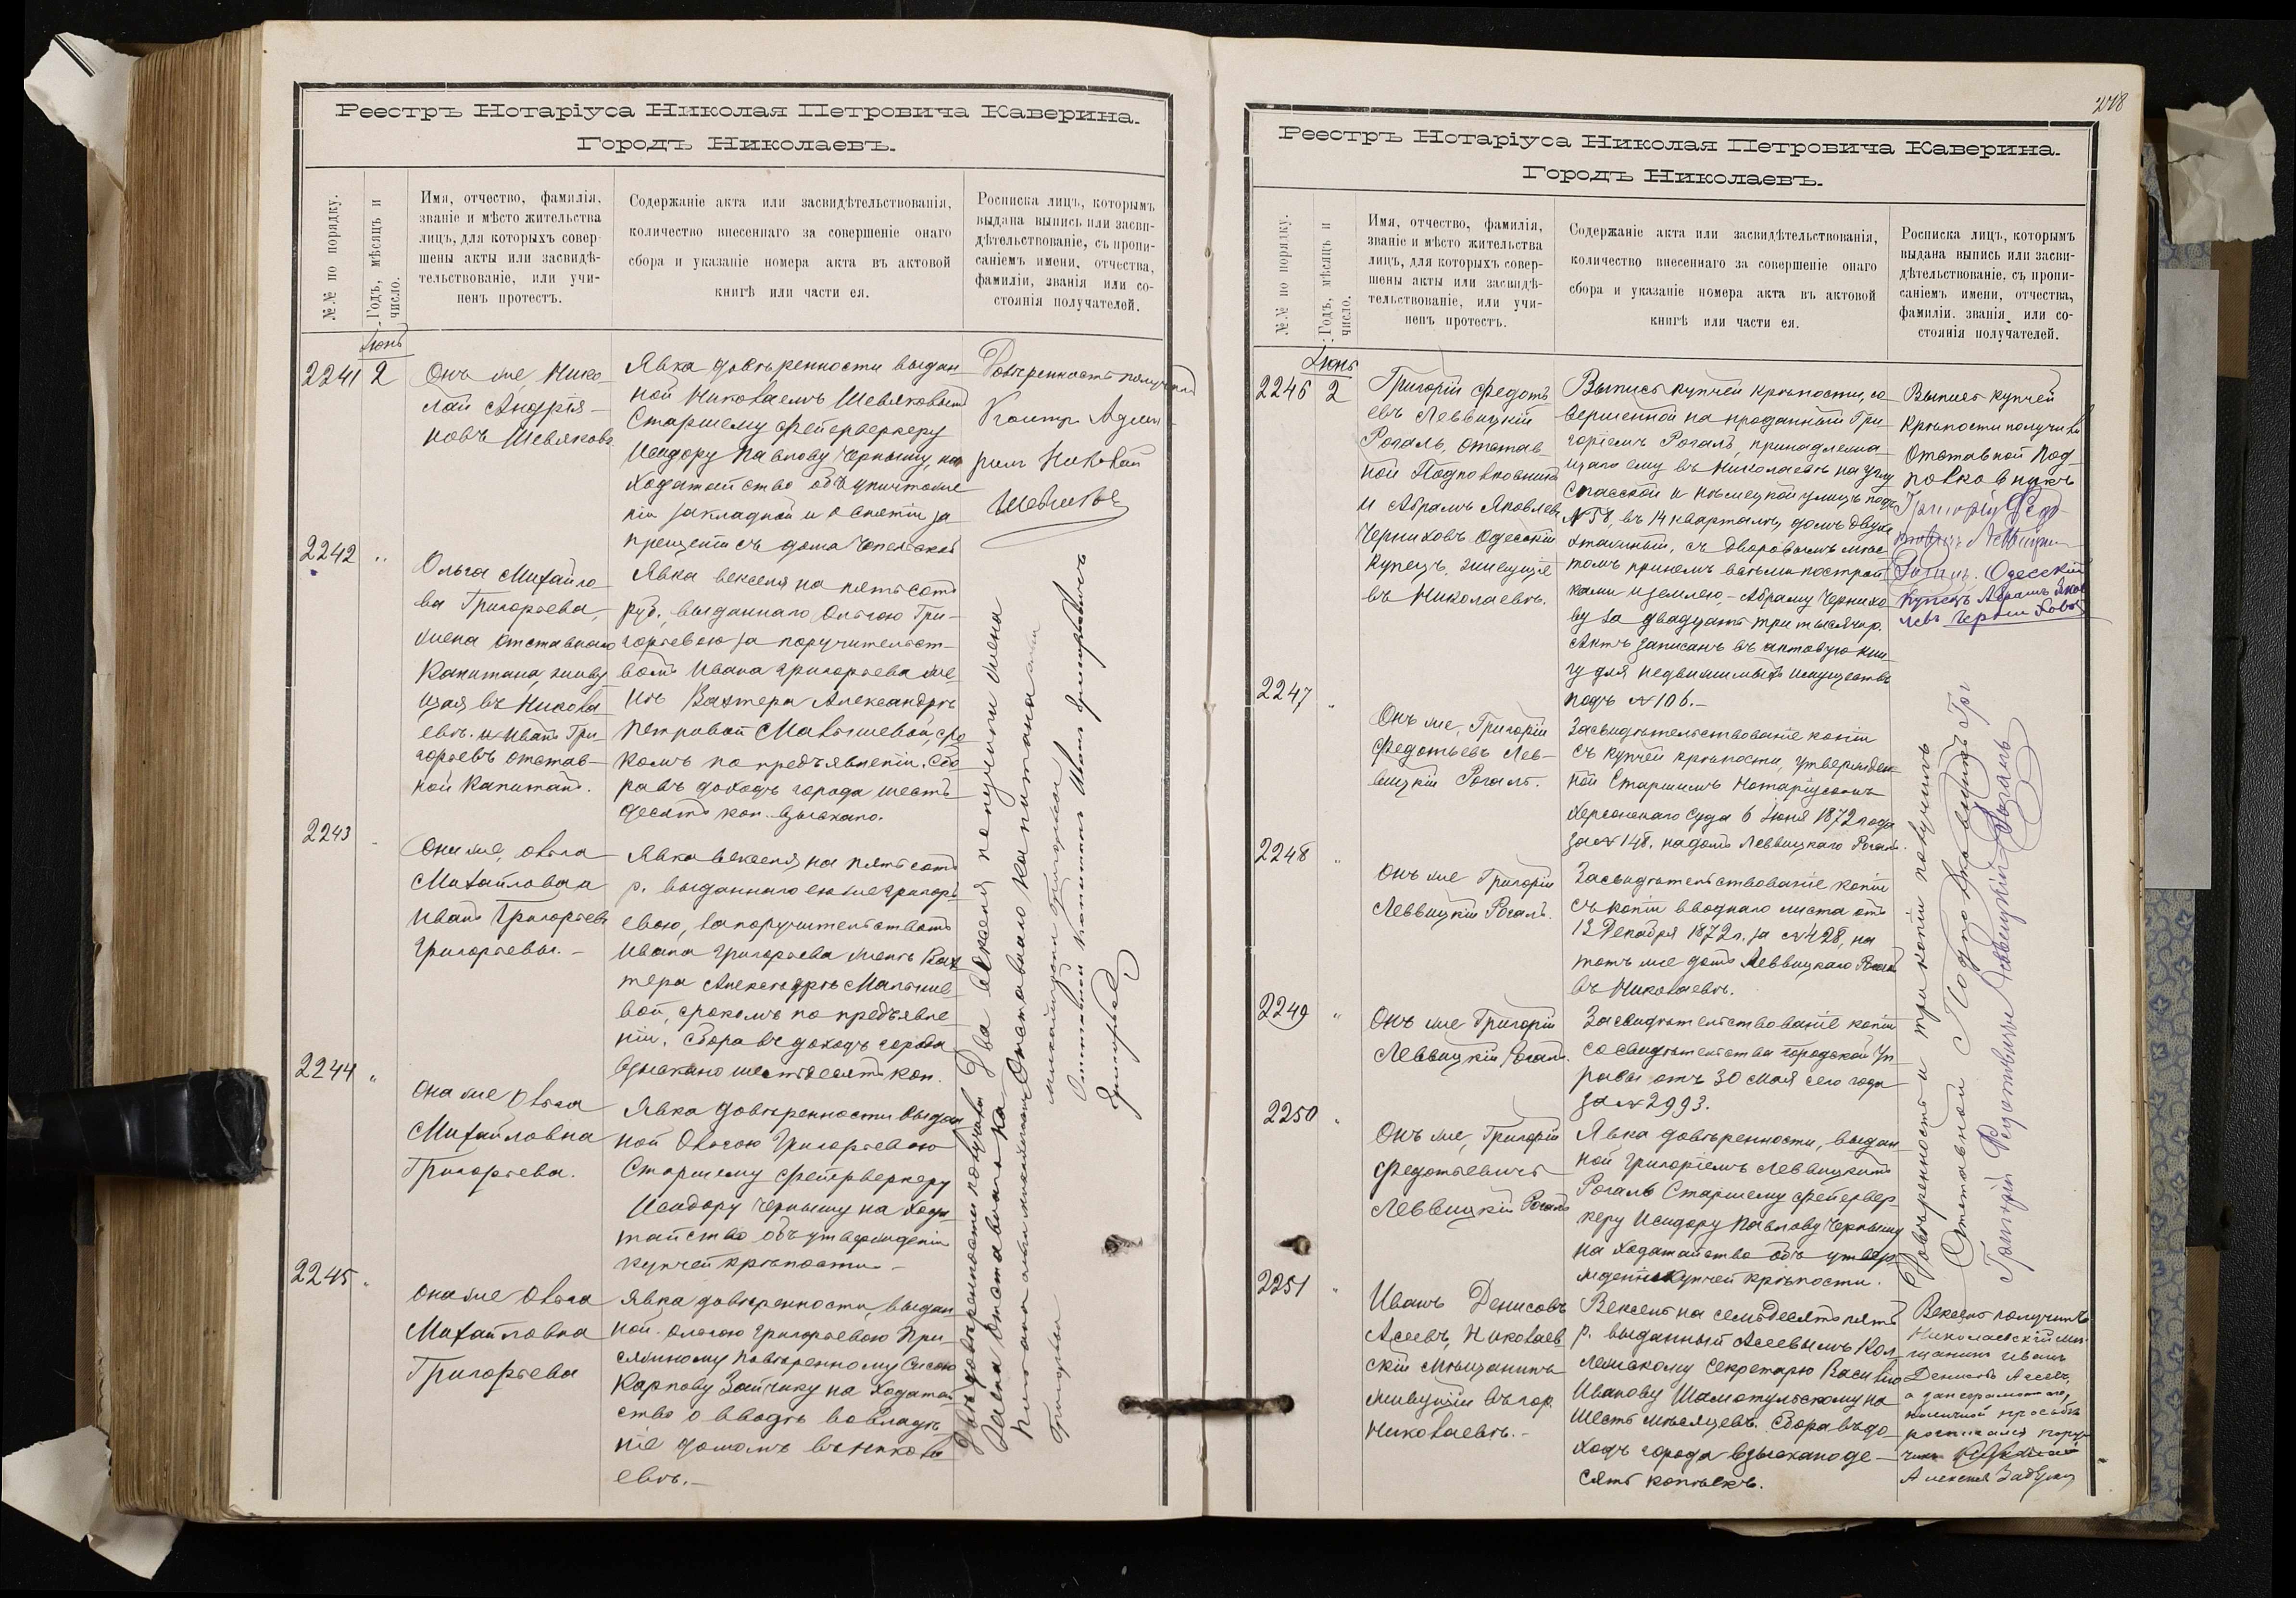 Реестръ Нотаріуса Николая Петровича Каверина.
Городъ Николаевъ.
№№ по порядку.
Годъ, мѣсяцъ и
число.
Имя, отчество, фамилія,
званіе и мѣсто жительства
лицъ, для которыхъ совер-
шены акты или засвидѣ-
тельствованіе, или учи-
ненъ протестъ.
Содержаніе акта или засвидѣтельствованія,
количество внесеннаго за совершеніе онаго
сбора и указаніе номера акта въ актовой
книгѣ или части ея.
Росписка лицъ, которымъ
выдана выпись или засви-
дѣтельствованіе, съ пропи-
саніемъ имени, отчества,
фамиліи, званія или со-
стоянія получателей.
Іюнь
2241 2
Онъ же, Нико-
лай Андрія-
новъ Шевяковъ
Явка довѣренности выдан-
ной Николаемъ Шевяковымъ
Старшему фейерверкеру
Исидору Павлову Чернышу, на
ходатайство объ уничтоже
ніи закладной и о снятіи за
прещенія съ дома
Довѣренность получилъ
Контр Адми-
ралъ Николай
Шевяковъ
2242 "
Ольга Михайло-
ва Григорьева,
жена отставнаго
Капитана, живу
щая въ Никола
евѣ. и Иванъ Гри-
горьевъ отстав-
ной Капитанъ.
Явка векселя на пятьсотъ
руб., выданнаго Ольгою Гри-
горьевою за поручительст-
вомъ Ивана Григорьева же
нѣ Вахтера Александрѣ
Петровой Малышевой, сро
комъ по предъявленіи. Сбо
ра въ доходъ города шесть
десятъ коп. взыскано.
2243
Они же, Ольга
Михайлова и
Иванъ Григорьевъ
Григорьевы. -
Явка векселя, на пятьсотъ
р. выданнаго ею же Григорь
евою, за поручительствомъ
Ивана Григорьева женѣ Вах
тера Александрѣ Малыше
вой, срокомъ по предъявле
ніи. Сбора въ доходъ города
взыскано шестьдесятъ коп.
2244 "
Она же Ольга
Михайловна
Григорьева.
Явка довѣренности выдан
ной Ольгою Григорьевою
Старшему фейерверкеру
Исидору Чернышу на хода
тайство объ утвержденіи
купчей крѣпости. -
2245 "
Она же Ольга
Михайловна
Григорьева
Явка довѣренности, выдан
ной Ольгою Григорьевою При-
сяжному повѣренному Сисою
Карпову Зайчику на ходатай
ство о вводѣ во владѣ
ніе домомъ въ Никола
евѣ. -
Двѣ довѣренности получила
Жена отставного ка
питана Ольга Михайловна
Григорьева
Два векселя получили жена
Отставного капитана Ольга
Михайловна Григорьева
Отставной Капитанъ Иванъ Григорьевичъ
Григорьевъ
218
Реестръ Нотаріуса Николая Петровича Каверина.
Городъ Николаевъ.
№№ по порядку.
Годъ, мѣсяцъ и
число.
Имя, отчество, фамилія,
званіе и мѣсто жительства
лицъ, для которыхъ совер-
шены акты или засвидѣ-
тельствованіе, или учи-
ненъ протестъ.
Содержаніе акта или засвидѣтельствованія,
количество внесеннаго за совершеніе онаго
сбора и указаніе номера акта въ актовой
книгѣ или части ея.
Росписка лицъ, которымъ
выдана выпись или засви-
дѣтельствованіе, съ пропи-
саніемъ имени, отчества,
фамиліи, званія или со-
стоянія получателей.
Іюнь
2246 2
Григорій Федотъ
евъ Леввицкій
Рогаль, отстав-
ной Подполковникъ
и Абрамъ Яковлевъ
Черниховъ Одесскій
Купецъ, живущіе
въ Николаевѣ.
Выпись купчей крѣпости, со
вершенной на проданный Гри-
горіемъ Рогаль, принадлежа-
щаго ему въ Николаевѣ на углу
Спасской и Нѣмецкой улицъ подъ
№ 58, въ 14 кварталѣ, домъ двухъ
этажный, съ дворовымъ мѣс-
томъ при немъ всѣми построй
ками и землею, - Абраму Чернихо
ву за двадцать три тысячи р.
Актъ записанъ въ актовую кни
гу для недвижимыхъ имуществъ
подъ № 106. -
Выпись купчей
Крѣпости получили
Отставной Под-
полковникъ
Григорій Федо-
Леввицкій
Рогаль. Одесскій
Купецъ Абрамъ Яков
левъ Черниховъ
2247 "
Онъ же, Григорій
Федотьевъ Лев-
вицкій Рогаль.
Засвидѣтельствованіе копіи
съ купчей крѣпости, утвержден-
ной Старшимъ Нотаріусомъ
Херсонскаго Суда 6 Іюня 1872 года
за № 148. на домъ Леввицкаго Рогаль.
2248 "
Онъ же Григорій
Леввицкій Рогаль.
Засвидѣтельствованіе копіи
съ копіи вводнаго листа отъ
13 Декабря 1872 г. за № 428, на
тотъ же домъ Леввицкаго Рогаль
въ Николаевѣ.
2249 "
Онъ же Григорій
Леввицкій Рогаль.
Засвидѣтельствованіе копіи
со свидѣтельства Городской Уп-
равы отъ 30 Мая сего года
за № 2993.
2250 "
Онъ же, Григорій
Федотьевичъ
Леввицкій Рогаль
Явка довѣренности, выдан
ной Григоріемъ Леввицкимъ
Рогаль Старшему фейервер-
керу Исидору Павлову Чернышу
на ходатайство объ утвер-
жденіи купчей крѣпости.
Довѣренность и три копіи получилъ
Отставной Подполковникъ
Григорій Федотьевичъ Леввицкій Рогаль
2251 "
Иванъ Денисовъ
Асеевъ, Николаев
скій Мѣщанинъ
живущій въ гор.
Николаевѣ. -
Вексель на семьдесятъ пять
р. выданный Асеевымъ Кол-
лежскому Секретарю Василію
Иванову Шамотульскому на
шесть мѣсяцевъ. Сбора въ до
ходъ города взыскано де-
сять копѣекъ.
Вексель получилъ
Николаевскій мѣ-
щанинъ Иванъ
Денисовъ Асеевъ,
а за неграмотнаго,
по личной просьбѣ
росписался
Алексѣй